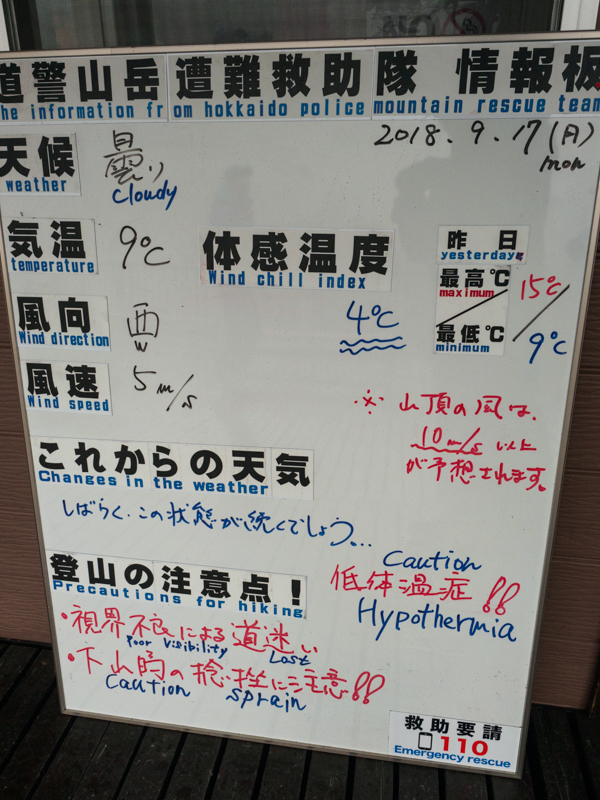 道警山岳 遭難救助隊 情報板
he information from hokkaido police mountain rescue team
2018.9.17(月)
mon
天候 曇り
weather cloudy
気温 9℃
temperature
体感温度
Wind chill index
4℃
昨日
yesterday
最高℃ 15℃
maximum
最低℃ 9℃
minimum
風向 西
Wind direction W
風速 5m/s
Wind speed
※山頂の風は、
10m/s 以上
が予想されます。
これからの天気
Changes in the weather
しばらく、この状態が続くでしょう...
登山の注意点!
Precautions for hiking
Caution
低体温症!!
Hypothermia
・視界不良による道迷い
Poor visibility Lost
・下山時の捻挫に注意!!
Caution sprain
救助要請
110
Emergency rescue